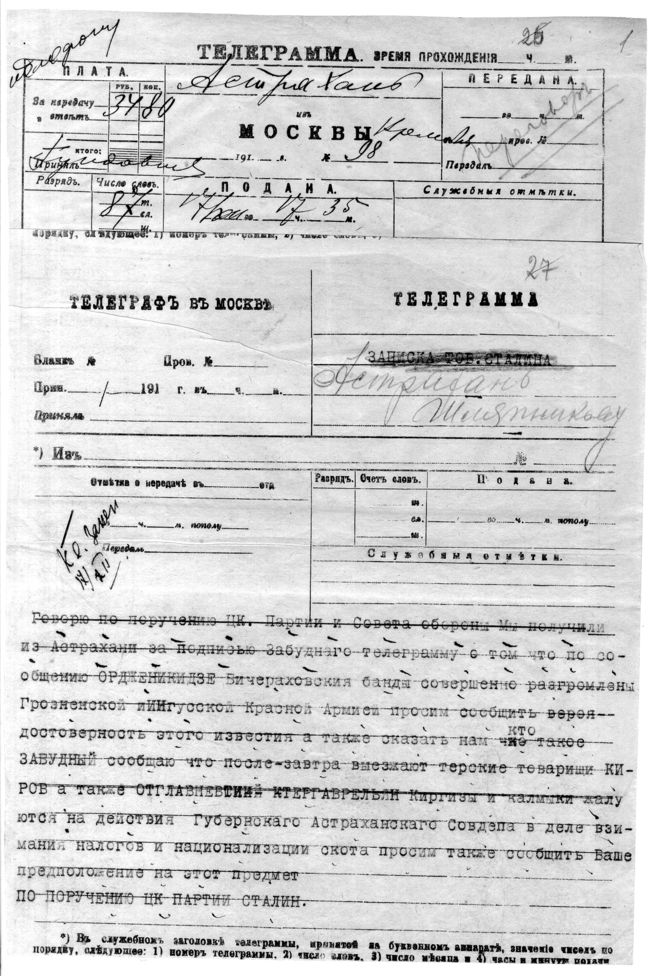 телефону
ТЕЛЕГРАММА. ВРЕМЯ ПРОХОЖДЕНІЯ ч. м.
1
ПЛАТА.
РУБ. КОП.
За передачу
и отвѣтъ 34 80
ИТОГО:
Принялъ
Разрядъ. Число словъ.
87 т.
сл.
ш.
Астрахань
изъ
МОСКВЫ Кремля
191 г. № 98
ПОДАНА.
17/XII го 17 ч. 35 м.
ПЕРЕДАНА
го ч. м.
пров. №
Передалъ
переговоръ
Служебныя отмѣтки.
порядку, слѣдующее: 1) номеръ телеграммы, 2) число словъ, 3)
27
ТЕЛЕГРАФЪ ВЪ МОСКВѢ
ТЕЛЕГРАММА
Бланкъ № Пров. №
Прин. / 191 г. въ ч. м.
Принялъ
ЗАПИСКА ТОВ. СТАЛИНА
Астрахань
Шляпникову
*) Изъ №
Отмѣтка о передачѣ въ отд.
ч. м. пополу
Передалъ
17/XII
Разрядъ. Счетъ словъ. Подана.
ш.
сл. / го ч. м. пополу
ш.
Служебныя отмѣтки.
Говорю по поручению ЦК. Партии и Совета обороны Мы получили
из Астрахани за подписью Забуднаго телеграмму о том что по со-
общению ОРДЖЕНИКИДЗЕ Бичераховския банды совершенно разгромлены
Грозненской иИнгусской Красной Армией просим сообщить вероя--
достоверность этого известия а также сказать нам кто такое
ЗАБУДНЫЙ сообщаю что после-завтра выезжают терские товарищи КИ-
РОВ а также Киргизы и калмыки жалу
ются на действия Губернскаго Астраханскаго Совдепа в деле взи-
мания налогов и национализации скота просим также сообщить Ваше
предположение на этот предмет
ПО ПОРУЧЕНИЮ ЦК ПАРТИИ СТАЛИН.
*) Въ служебномъ заголовкѣ телеграммы, принятой на буквенномъ аппаратѣ, значеніе чиселъ по
порядку, слѣдующее: 1) номеръ телеграммы. 2) число словъ, 3) число мѣсяца и 4) часы и минуты подачи